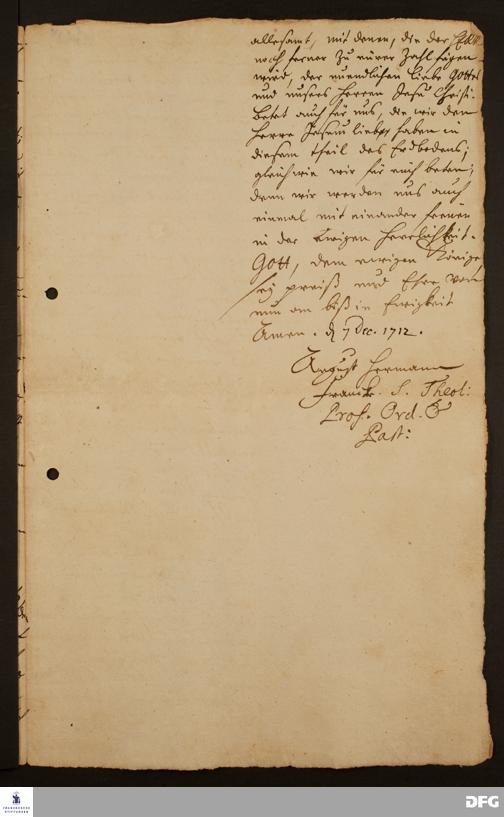 allesamt, mit denen, die der HErr
noch ferner zu eurer Zahl fügen
wird, der unendlichen Liebe Gottes
und unsers Herren Jesu Christi.
Betet auch für uns, die wir den
Herrn Jesum lieb haben in
diesem theil des Erdbodens;
gleichwie wir für euch beten;
denn wir werden uns auch
einmal mit einander freuen
in der Ewigen Herrlichkeit.
Gott, dem ewigen Könige
sey preiß und Ehre von
nun an biß in Ewigkeit
Amen. d 7 Dec. 1712.
August Hermann
Francke. S. Theol:
Prof. Ord. &
Past:
FRANCKESCHE
STIFTUNGEN
DFG